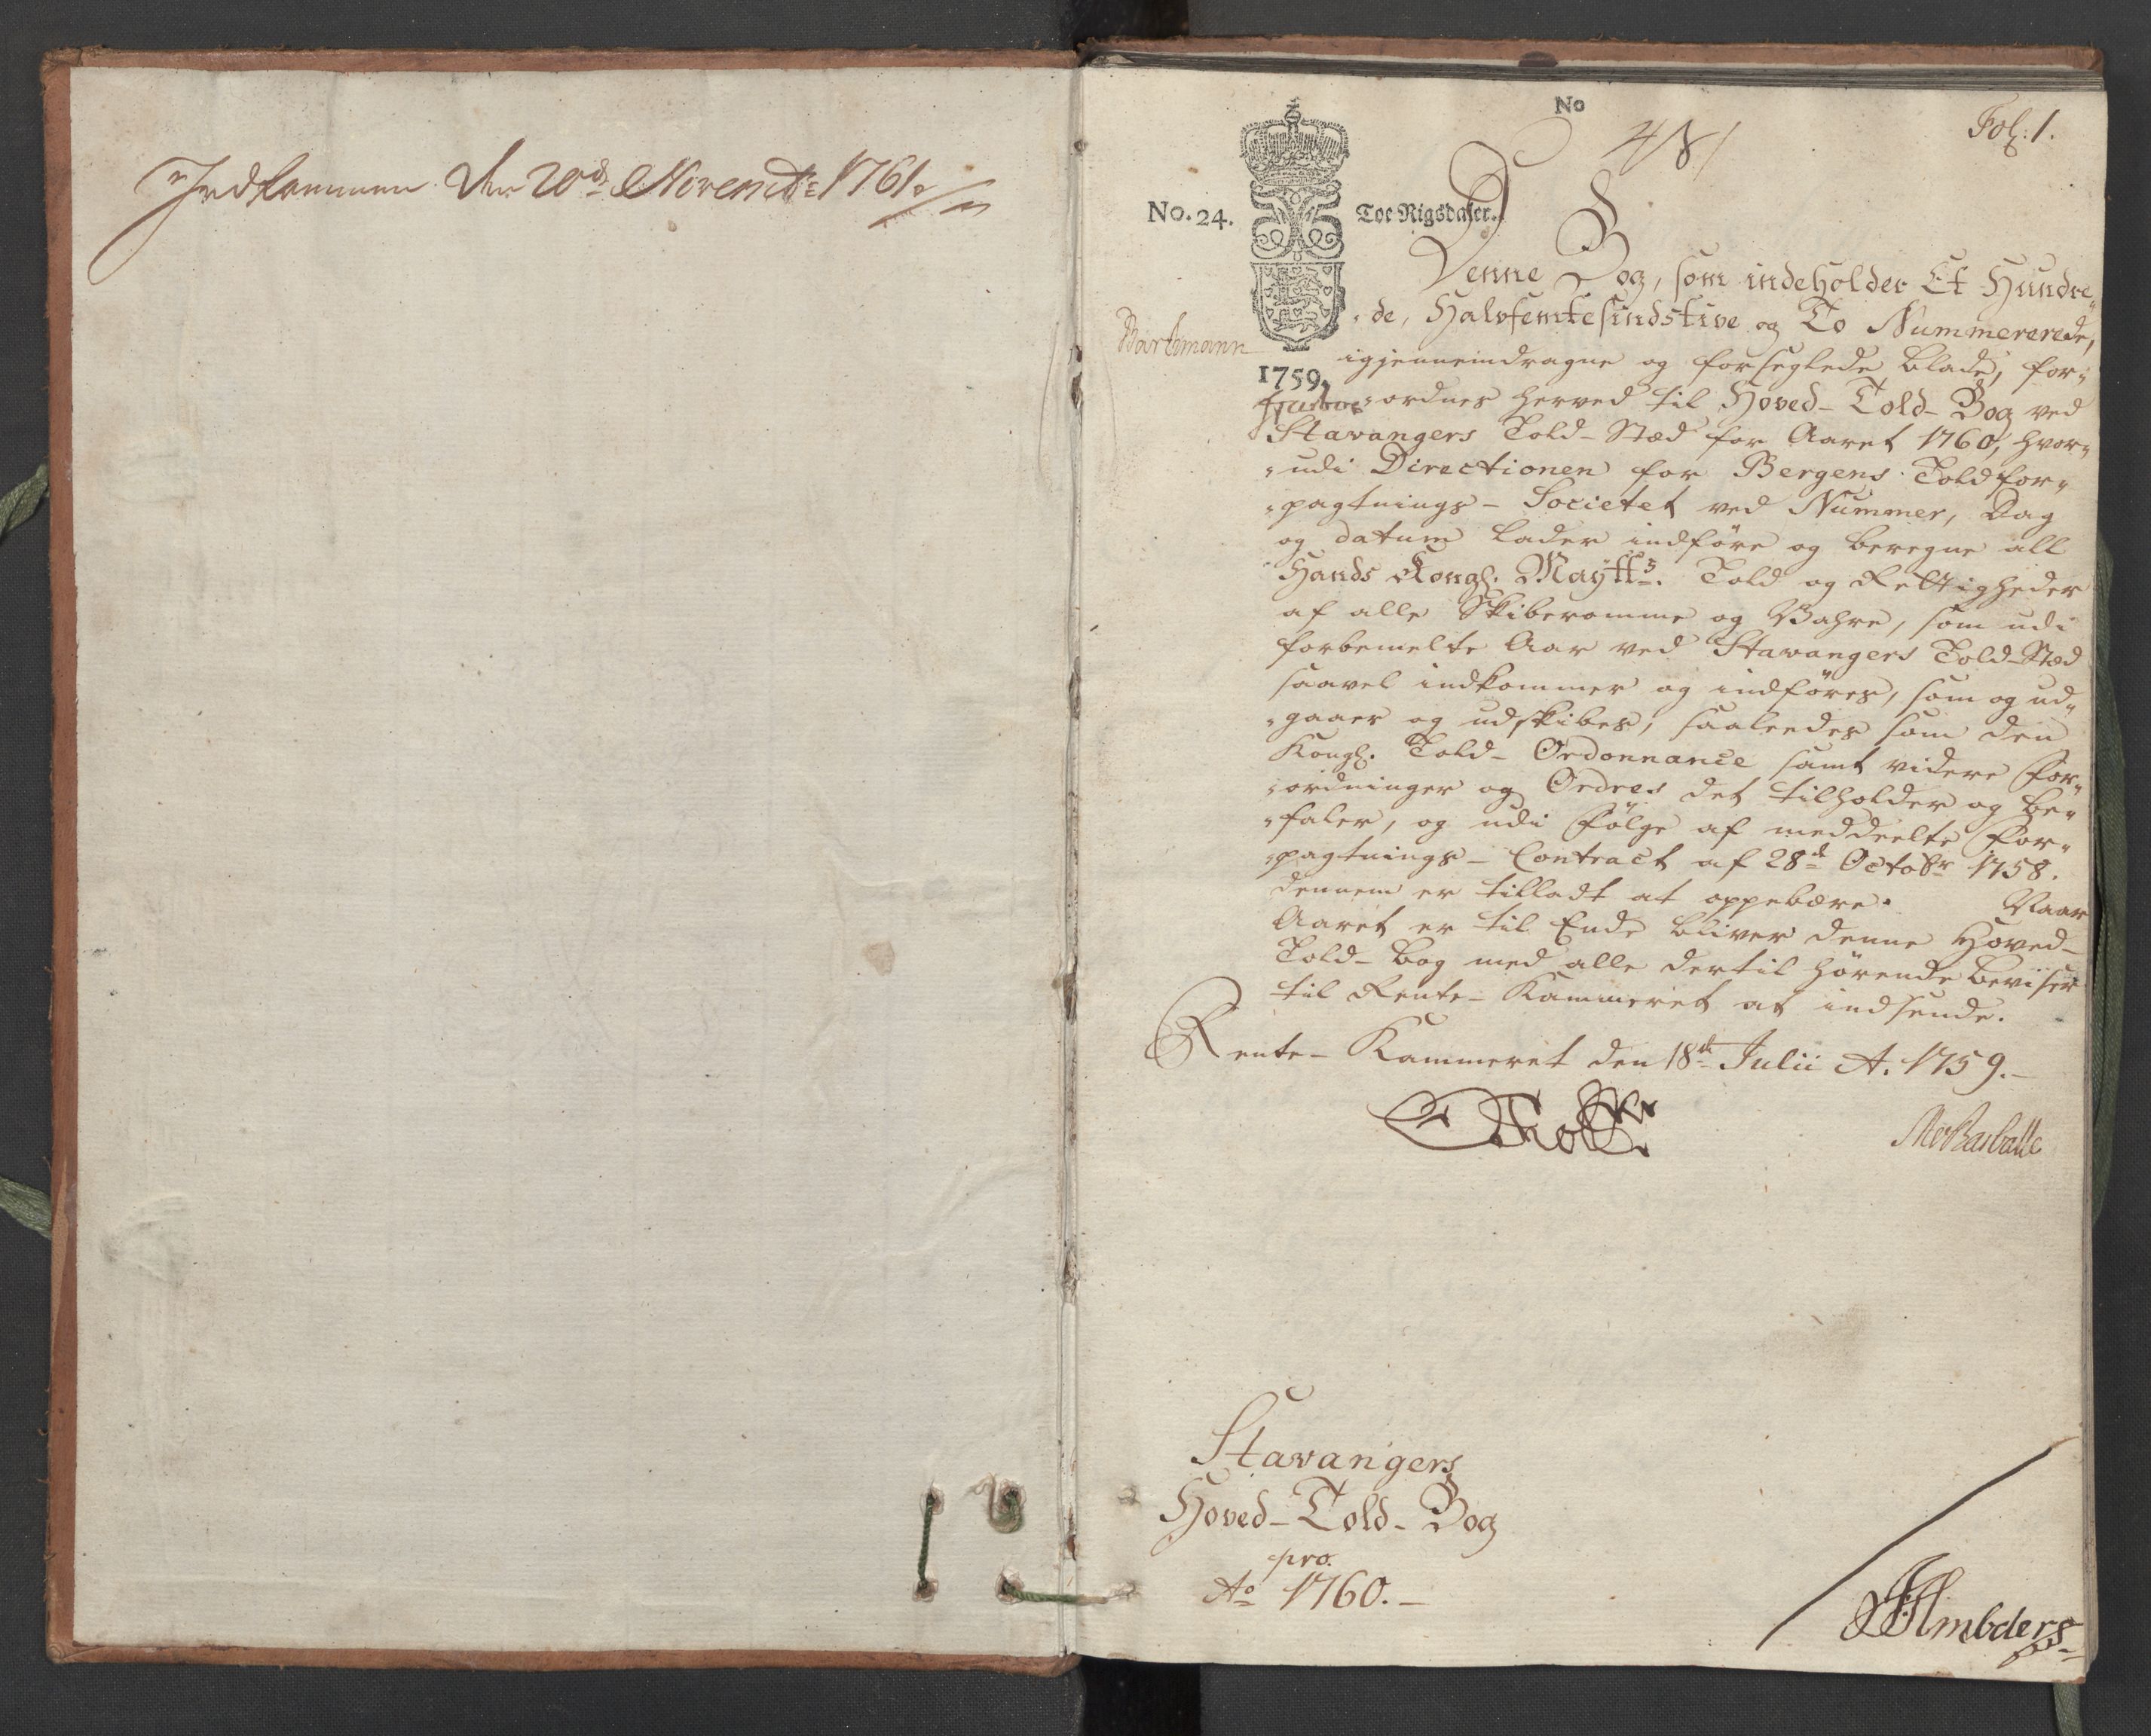 Indkommen den 20de Novembr 1761.
No
481
Fol: 1.
No. 24.
Toe Rigsdaler.
Denne Bog, som indeholder Et Hundre-
de, Halvfemtesindstive og To Nummererede,
Bartzmann
igjennemdragne og forseglede blade, for-
1759.
ordnes herved til Hoved-Told-Bog ved
Stavangers Told-Stæd for Aaret 1760, hvor-
udi Directionen for Bergens Toldfor-
pagtnings-Societet ved Nummer, Dag
og datum lader indföre og beregne all
Hands Kongl. Maytts. Told og Rettigheder
af alle Skiberomme og Wahre, som udi
forbemelte Aar ved Stavangers Told-Stæd
saavel indkommer og indföres, som og ud-
gaaer og udskibes, saaledes som den
Kongl. Told-Ordonnance samt videre For-
ordninger og Ordres det tilholder og be-
faler, og udi Fölge af meddeelte For-
pagtnings-Contract af 28de Octobr 1758.
dennem er tilladt at oppebære. Naar
Aaret er til Ende bliver denne Hoved-
Told-bog med alle dertil hörende beviiser
til Rente-Kammeret at indsende.
Rente-Kammeret den 18de Julii A. 1759.
Stavangers
Hoved-Told-Bog
pro.
Ao 1760.